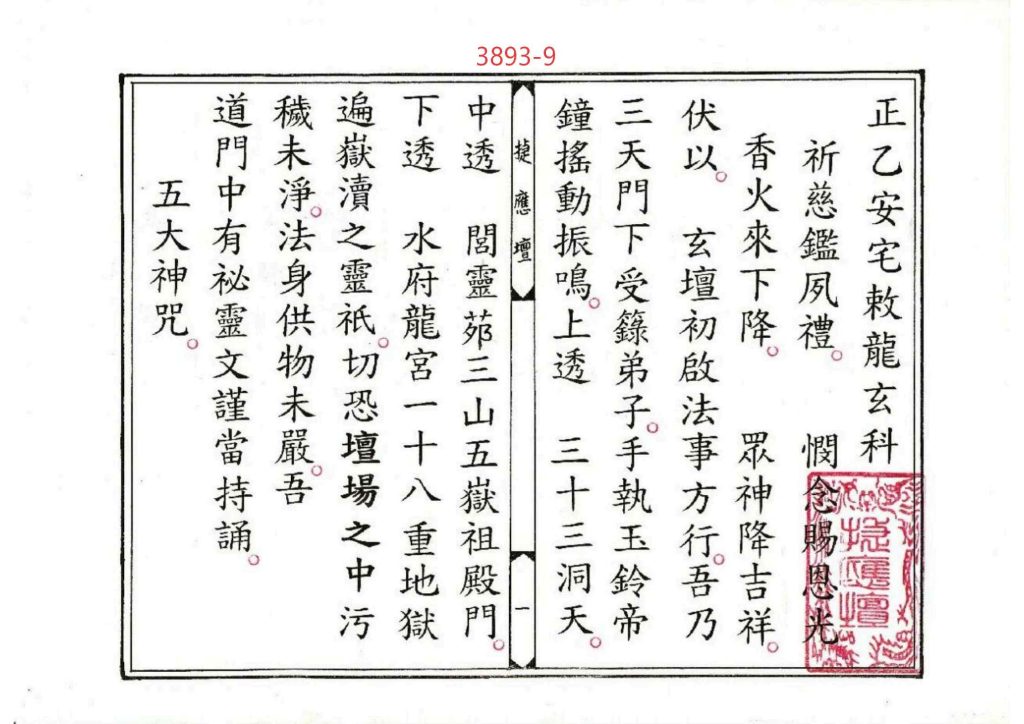 3893-9
正乙安宅敕龍玄科
祈慈鑑夙禮。 憫念賜恩光
香火來下降。 眾神降吉祥。
伏以。 玄壇初啟法事方行。吾乃
三天門下受籙弟子。手執玉鈴帝
鐘搖動振鳴。上透 三十三洞天。
捷應壇
一
中透 閭靈茆三山五嶽祖殿門。
下透 水府龍宮一十八重地獄
遍嶽瀆之靈祇。切恐壇場之中污
穢未淨。法身供物未嚴。吾
道門中有祕靈文謹當持誦。
五大神咒。
捷應壇